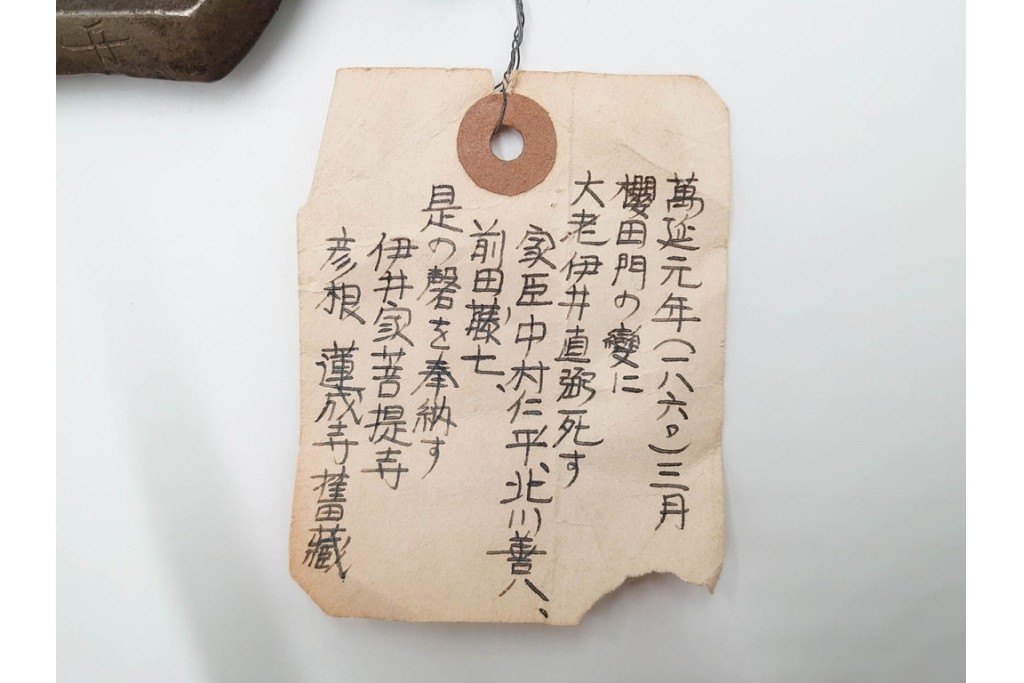 萬延元年(一八六〇)三月
櫻田門の變に
大老伊井直弼死す
家臣中村仁平、北川善八、
前田藤七、
是の磬を奉納す
伊井家菩提寺
彦根 蓮成寺舊藏